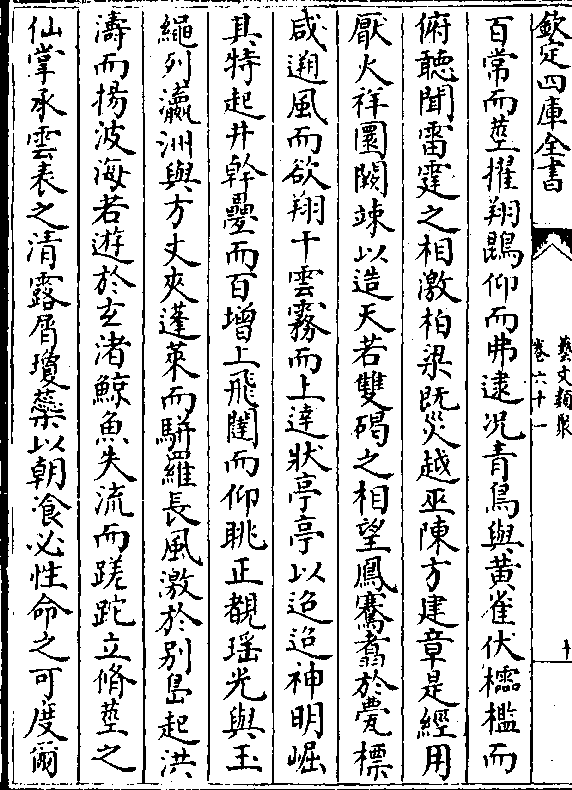 欽定四庫全書
藝文類聚
卷六十一
十
百常而莖擢翔鶤仰而弗逮况青鳥與黄雀伏櫺檻而
俯聽聞雷霆之相激柏梁既災越巫陳方建章是經用
厭火祥圜闕竦以造天若雙碣之相望鳳騫翥於甍標
咸遡風而欲翔干雲霧而上達狀亭亭以迢迢神明崛
其特起井幹疊而百增上飛闥而仰眺正覩瑶光與玉
繩列瀛洲與方丈夾蓬萊而駢羅長風激於别島起洪
濤而揚波海若遊於玄渚鯨魚失流而蹉跎立脩莖之
仙掌承雲表之清露屑瓊蘂以朝湌必性命之可度爾